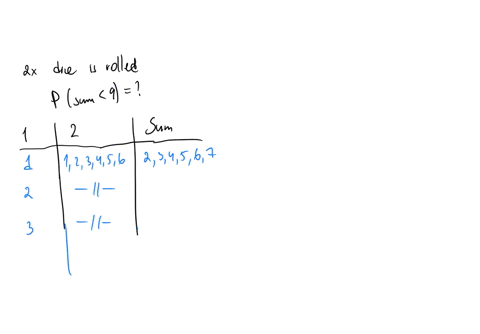 2x die is rolled
P (sum < 9) = ?
1 2 Sum
1 1,2,3,4,5,6 2,3,4,5,6,7
2 -||-
3 -||-